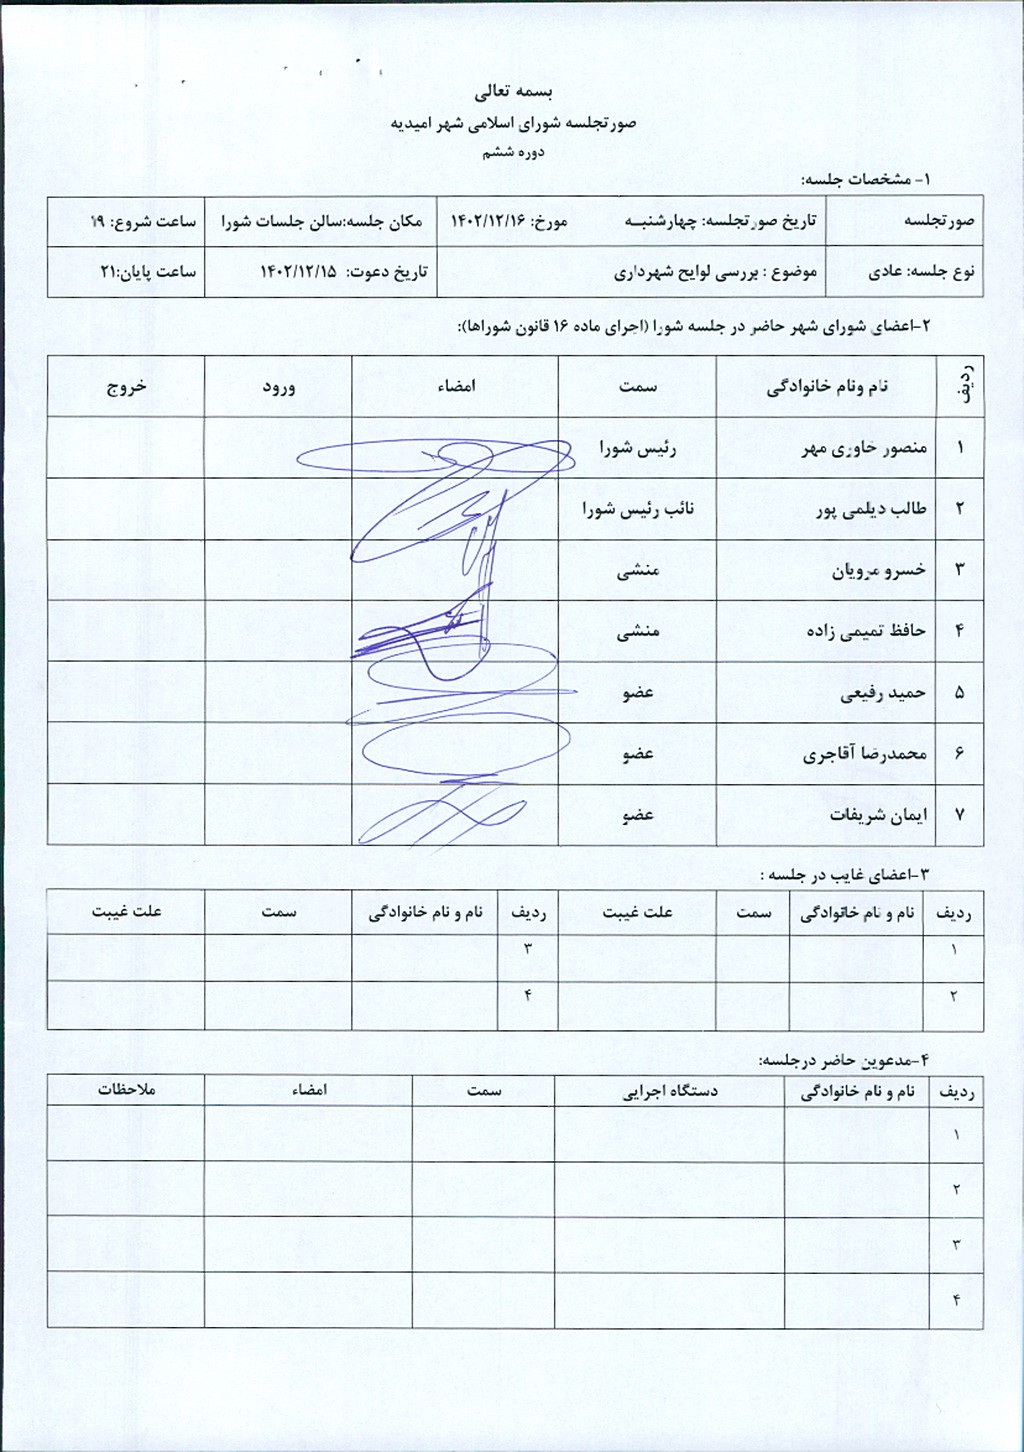 بسمه تعالی
صورتجلسه شورای اسلامی شهر امیدیه
دوره ششم
۱- مشخصات جلسه:
صورتجلسه تاریخ صورتجلسه: چهارشنبه مورخ: ۱۴۰۲/۱۲/۱۶ مکان جلسه:سالن جلسات شورا ساعت شروع: ۱۹
نوع جلسه: عادی موضوع : بررسی لوایح شهرداری تاریخ دعوت: ۱۴۰۲/۱۲/۱۵ ساعت پایان:۲۱
۲-اعضای شورای شهر حاضر در جلسه شورا (اجرای ماده ۱۶ قانون شوراها):
ردیف نام ونام خانوادگی سمت امضاء ورود خروج
۱ منصور خاوری مهر رئیس شورا
۲ طالب دیلمی پور نائب رئیس شورا
۳ خسرو مرویان منشی
۴ حافظ تمیمی زاده منشی
۵ حمید رفیعی عضو
۶ محمدرضا آقاجری عضو
۷ ایمان شریفات عضو
۳-اعضای غایب در جلسه :
ردیف نام و نام خانوادگی سمت علت غیبت ردیف نام و نام خانوادگی سمت علت غیبت
۱ ۳
۲ ۴
۴-مدعوین حاضر درجلسه:
ردیف نام و نام خانوادگی دستگاه اجرایی سمت امضاء ملاحظات
۱
۲
۳
۴